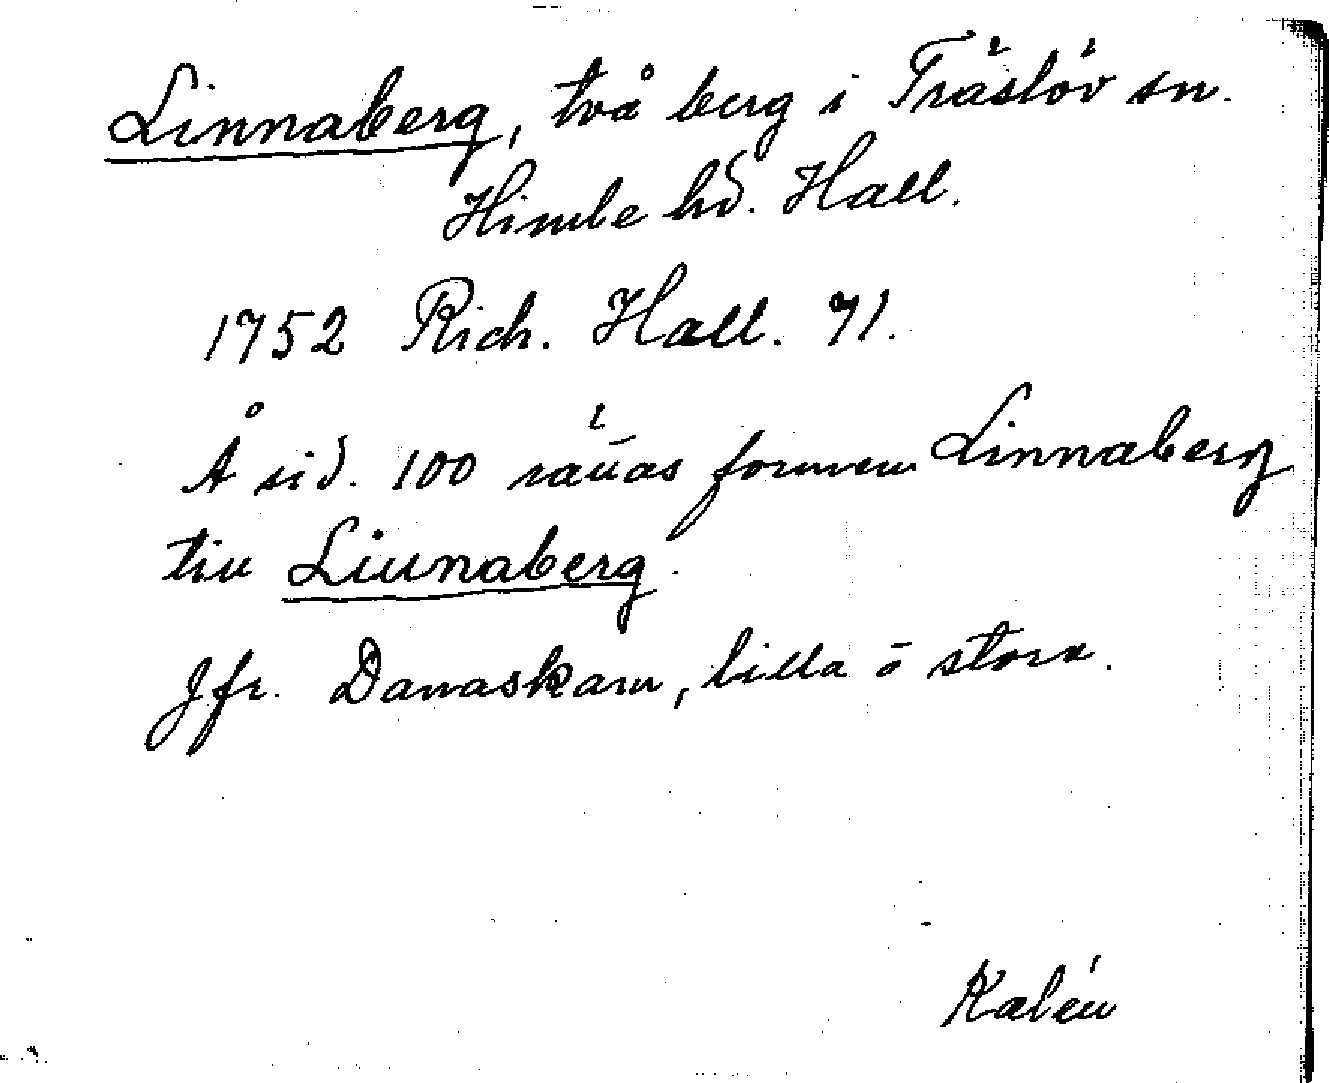 Linnaberg, två berg i Träslöv sn.
Himle hd. Hall.
1752 Rich. Hall. 71.
Å sid. 100 rättas formen Linnaberg
till Liunaberg.
Jfr. Danaskarn, lilla o stora.
Kalén